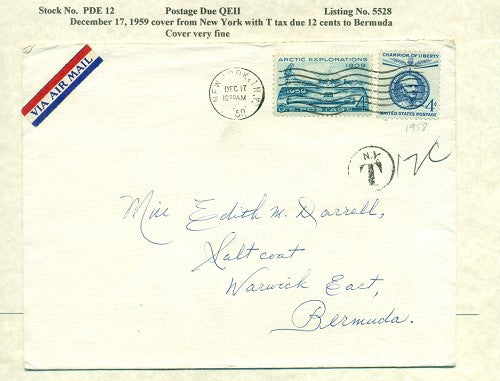 Stock No. PDE 12 Postage Due QEII Listing No. 5528
December 17, 1959 cover from New York with T tax due 12 cents to Bermuda
Cover very fine
VIA AIR MAIL
ARCTIC EXPLORATIONS
1909
1959
4¢
U.S. POSTAGE
CHAMPION OF LIBERTY
4¢
UNITED STATES POSTAGE
1958
NEW YORK, N.Y.
DEC 17
12 30 AM
59
N.Y.
T
12C
Miss Edith M. Darrell,
Saltcoat
Warwick East,
Bermuda.